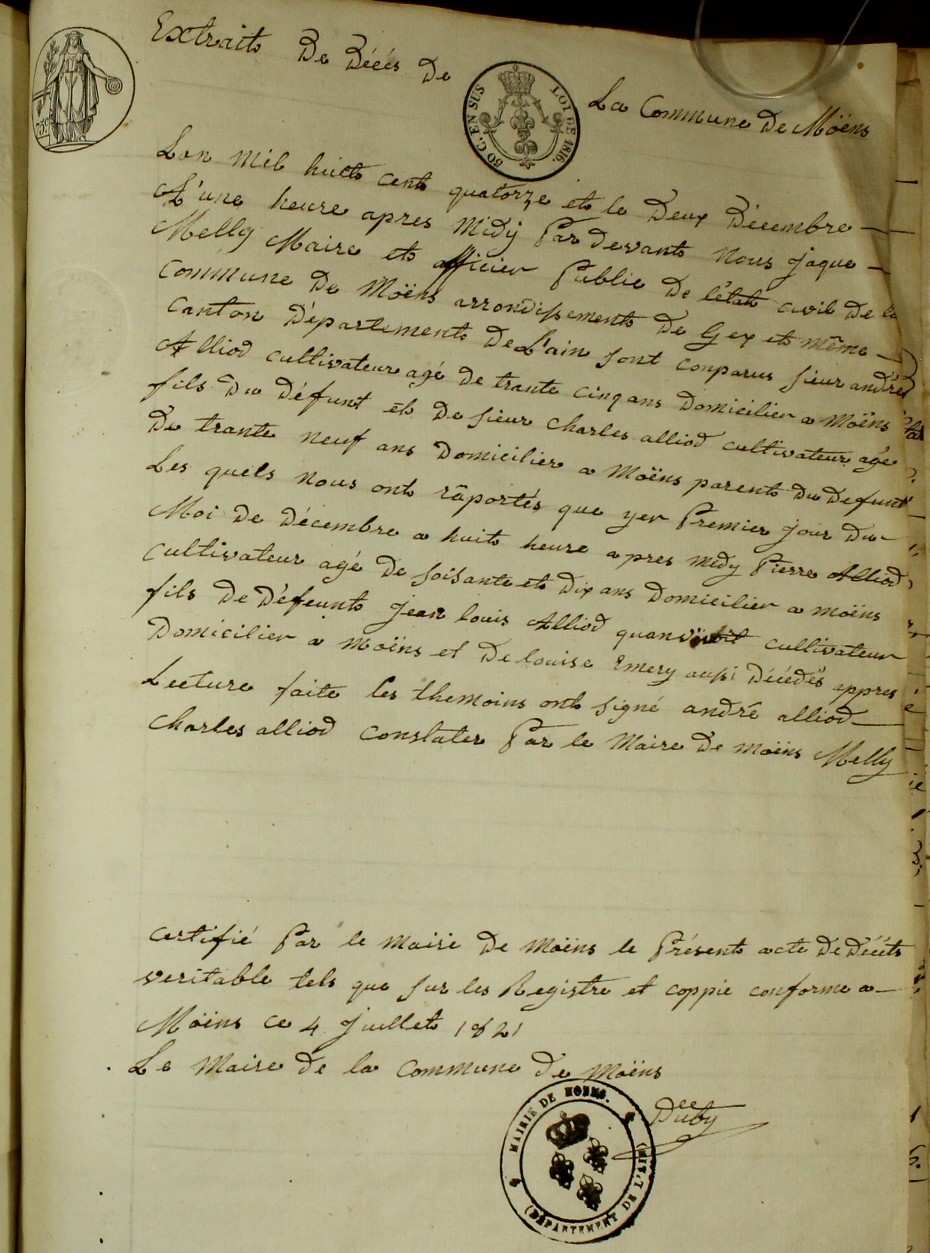 Extraits De Décés De La Commune De Moëns
80 C. EN SUS LOI DE 1816.
Lan mil huits cents quatorze ets le Deux Décembre
A L'une heure apres Midÿ Par devants Nous jaque
Melly Maire ets officier Public De l'états civil De la
Commune De Moëns arrondissements De Gex ets même
Canton Départements De L'ain sont conparus sieur andré
Alliod cultivateur agé De trante cinq ans Domicilier a Moëns
fils Du Défunt et De sieur Charles alliod cultivateur agé
De trante neuf ans Domicilier a Moëns parents Du Defunt
Les quels nous ont râportés que yer Premier jour Du
Moi De Décembre a huits heure apres midy Pierre Alliod
Cultivateur agé De soisante ets Dix ans Domicilier a moëns
fils De Défeunts jean louis Alliod quan cultivateur
Domicilier a Moëns et De louise Emery aussi Décédés appres
Lecture faite les themoins ont signé andré alliod
Charles alliod constater Par le Maire De moëns Melly
certifié Par le maire De moëns le Présents acte De Décéts
veritable tels que sur les Registre et coppie conforme a
Moëns ce 4 juillets 1821
Le Maire De la Commune De Moëns
Duby
MAIRIE DE MOENS.
(DÉPARTEMENT DE L'AIN)